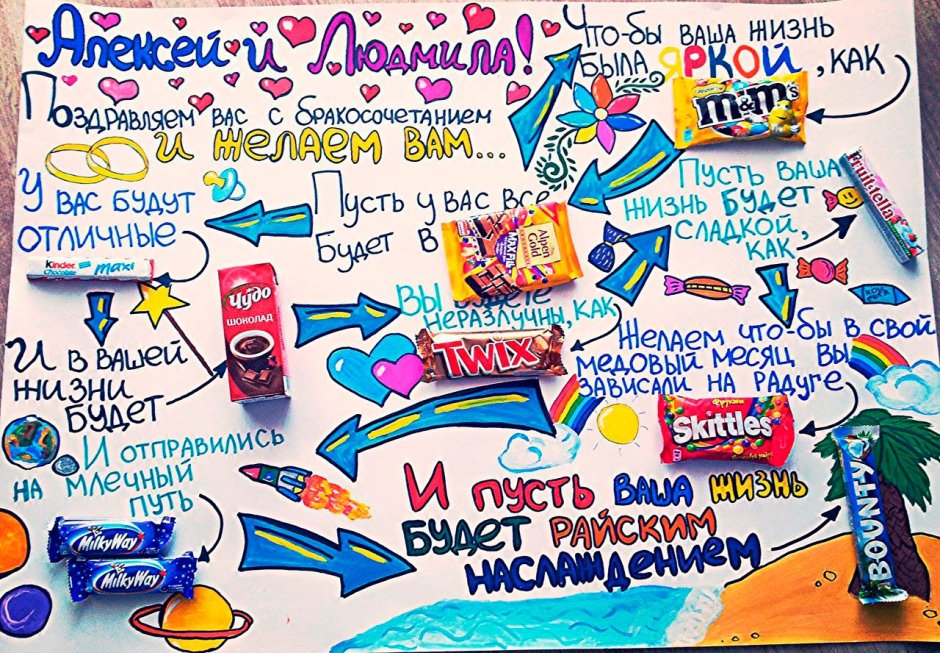 Алексей и Людмила!
Поздравляем вас с бракосочетанием
и желаем вам...
Что-бы ваша жизнь
была яркой, как
m&m's
Пусть ваша
жизнь будет
сладкой,
как
Fruittella
Пусть у вас все
будет в
Alpen Gold
MixFix
У вас будут
отличные
kinder
chocolate maxi
И в вашей
жизни
будет
Чудо
шоколад
Вы будете
неразлучны, как
TWIX
Желаем что-бы в свой
медовый месяц вы
зависали на радуге
Фрукты
Skittles
И отправились
на млечный
путь
MilkyWay
MilkyWay
И пусть ваша жизнь
будет райским
наслаждением
BOUNTY